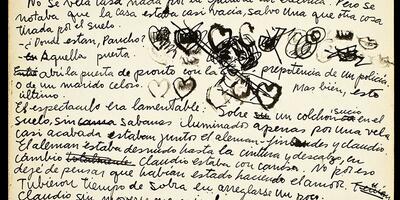 No se veía casi nada por la
notaba que la casa estaba casi vacía, salvo una que otra cosa
tirada por el suelo.
- ¿Donde estan, Pancho?
- En aquella puerta.
Entré abrí la puerta de pronto con la prepotencia de un policía
o de un marido celoso. Mas bien, esto
último.
El espectaculo era lamentable: Sobre un colchon sucio en el
suelo, sin cama sabanas iluminado apenas por una vela
casi acabada estaban junto el aleman y Claudio.
El aleman estaba desnudo hasta la cintura y descalzo, en
cambio totalmente Claudio estaba con camisa. No por eso
dejé de pensar que habían estado haciendo el amor.
Tubieron tiempo de sobra en arreglarse un poco.
Claudio sin